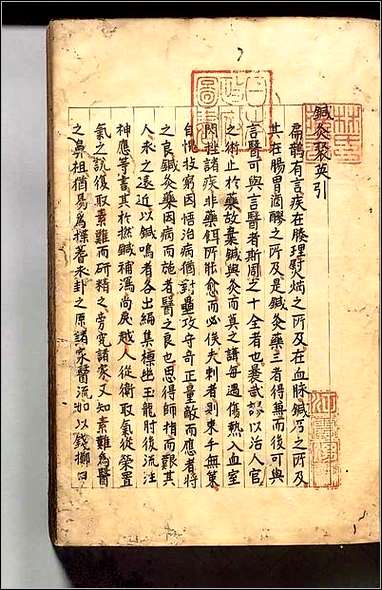 鍼灸聚英引
扁鵲有言疾在腠理熨焫之所及在血脉鍼石之所及
其在腸胃酒醪之所及是鍼灸藥三者得兼而後可與
言醫可與言醫者斯周之十全者也曩武以治人官
之術止於藥故棄鍼與灸而莫之講每遇傷熱入血室
閃挫諸疾非藥餌所能愈而必俟夫刺者則束手無策
自愧技窮因悟治病猶對壘攻守奇正量敵而應者將
之良鍼灸藥因病而施者醫之良也思得師指而艱其
人求之遠近以鍼鳴者各出編集標幽玉龍肘後流注
神應等書其於撚鍼補瀉尚戾越人從衛取氣從榮置
氣之說復取素難而研精之旁究諸家又知素難為醫
之鼻祖猶易為揲蓍求卦之原諸家醫流如以錢擲